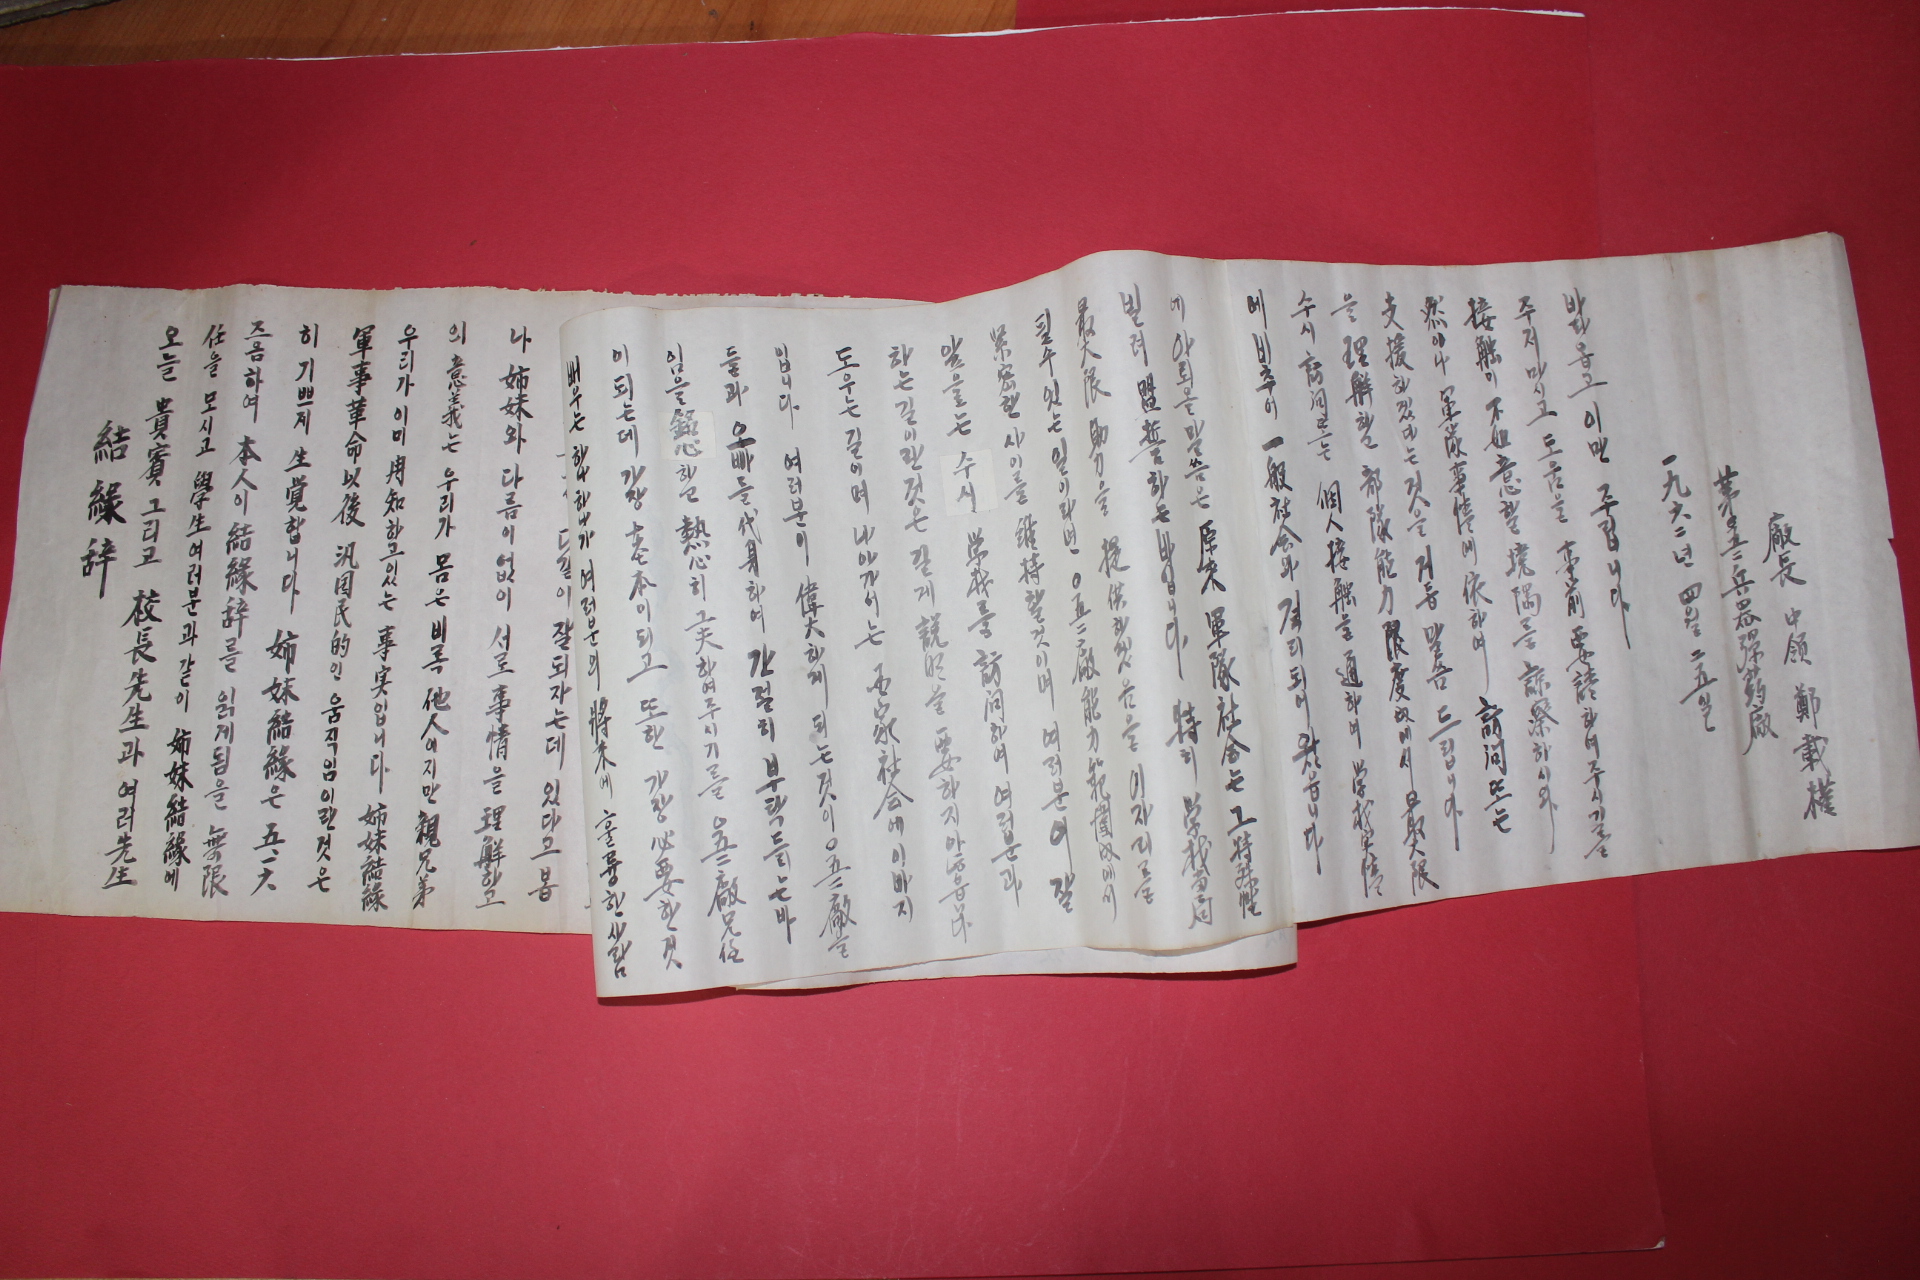 結緣辞
오늘 貴賓 그리고 校長先生과 여러先生
任을 모시고 學生여러분과 같이 姉妹結緣에
즈음하여 本人이 結緣辞를 읽게됨을 無限
히 기쁘게 生覚합니다 姉妹結緣은 五.一六
軍事革命以後 汎国民的인 움직임이란것은
우리가 이미 周知하고있는 事実입니다 姉妹結緣
의 意義는 우리가 몸은 비록 他人이지만 親兄弟
나 姉妹와 다름이없이 서로 事情을 理解하고
잘되자는데 있다고 봄
배우는 여러분의 將來에 훌륭한 사람
이 되는데 가장 基本이되고 또한 가장 必要한것
임을 銘心하고 熱心히 工夫하여주시기를 五二廠兄任
들과 오빠들 代身하여 간절히 부탁드리는바
입니다 여러분이 偉大하게 되는것이 五二廠을
도우는 길이며 나아가서는 国家社会에 이바지
하는길이란것은 길게 説明을 要하지아
앞으로는 수시 学校를 訪問하여 여러분과
緊密한 사이를 維持할것이며 여러분이 잘
될수있는일이라면 五二廠能力範囲内에서
最大限 助力을 提供하겠음을 이자리를
빌려 盟誓하는바입니다 特히 学校当局
에 아뢰올말씀은 原來 軍隊社会는 그特殊性
에 비추어 一般社会와 격리되어 왔읍니다
수시 訪問또는 個人接触을 通하여 学校事情
을 理解할 部隊能力限度内에서 最大限
支援하겠다는것을 거듭 말씀 드립니다
然이나 軍隊事情에 依하여 訪問또는
接触이 不如意할 境隅를 諒察하시와
주저마시고 도움을 事前 要請하여주시기를
바라옵고 이만 주립니다
一九六二년 四월 二五일
第五二兵器彈薬廠
廠長 中領 鄭載權